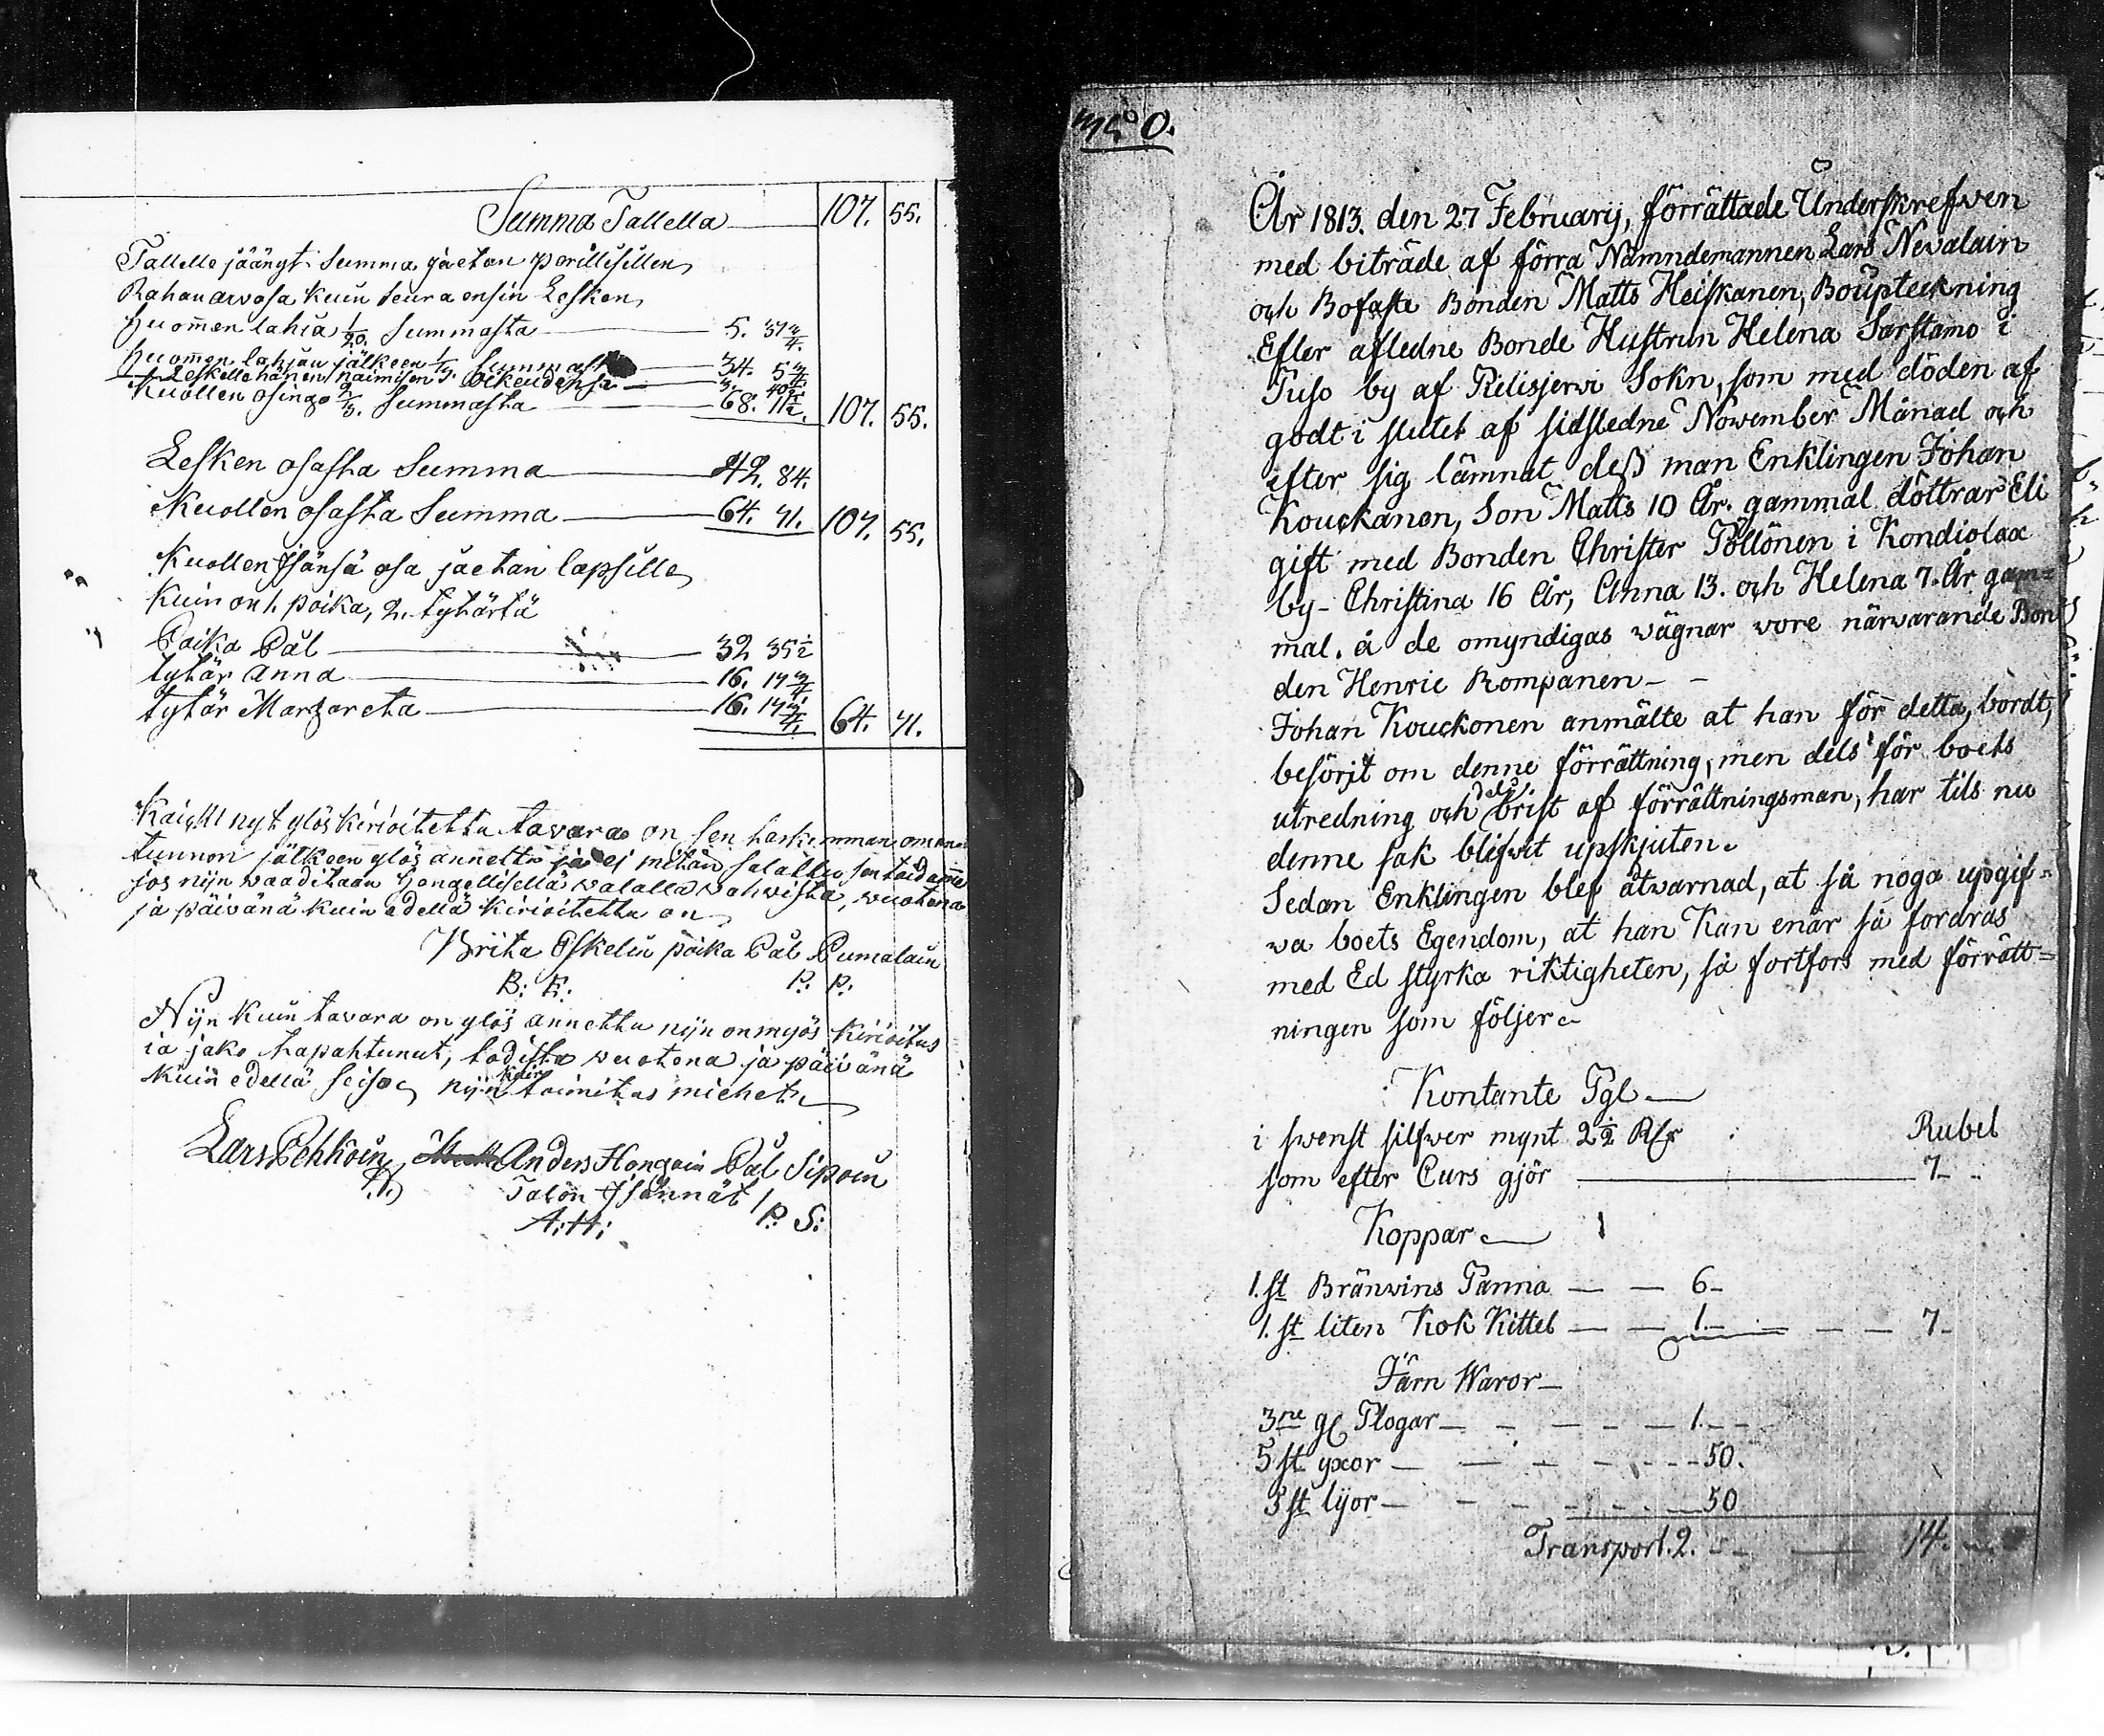 Summa Tallella 107. 55.
Tallelle jäänyt Summa jaetan perillisillen
Rahan arvosa kuin seura ensin Lesken
huomen lahia 1/20. Summasta 5. 37 3/4.
huomen lahian jälkeen 1/3 Summasta 34. 5 3/4
Leskelle hänen naimisen oikeudensa 3. 40 1/2
Kuollen osingo 2/3. Summasta 68. 11 1/2. 107. 55.
Lesken osasta Summa 42. 84.
Kuollen osasta Summa 64. 71. 107. 55.
Kuollen Isänsä osa jaetan lapsille
Kuin on 1. poika, 2. tytärtä
Poika Pål 32 35 1/2
tytär Anna 16. 17 3/4
tytär Margareta 16. 17 3/4. 64. 71.
Kaicki nyt ylöskirioitettu tavara on sen
tunnon jälkeen ylös annettu ja ei mitän salattu sen taidamme
jos nijn waaditaan Hengellisellä walalla wahwista, wuotena
ja päivänä kuin edellä kirioitettu on
Brita Eskelin poika Pål Pumalain
B: E: P: P:
Nijn kuin tavara on ylös annettu nijn on myös kirioitus
ia jako tapahtunut, todista wuotena ja päivänä
kuin edellä seiso, nijn kuin toimitus miehet
Lars Pehkoin Anders Hongain Pål Sipoin
Talon Isännät
A: H: P: S:
No 0.
År 1813. den 27 Februarij, förrättade Underskrefwen
med biträde af förra Nämndemannen Lars Nevalain
och Bofaste Bonden Matts Heiskanen, Boupteckning
Efter afledne Bonde Hustrun Helena Sarstamo i
Puso by af Pilisjerwi Sokn, som med döden af
godt i slutet af sidstledne November Månad och
efter sig lämnat dess man Enklingen Johan
Kouckanen, Son Matts 10 År. gammal döttrar Eli
gift med Bonden Christer Pöllönen i Kondiolax
by – Christina 16 År, Anna 13. och Helena 7. År gam=
mal. å de omyndigas vägnar vore närvarande Bon
den Henric Rompanen – –
Johan Kouckonen anmälte at han för detta, bordt,
besörjt om denne förrättning, men dels för boets
utredning och dels brist af förrättningsman, har tils nu
denne sak blifwit upskjuten.
Sedan Enklingen blef åtvarnad, at så noga upgif=
va boets Egendom, at han kan enär så fordras
med Ed styrka riktigheten, så fortfors med förrätt=
ningen som följer
Kontante Pgl
i swenst silfwer mynt 2 1/2 Rdr Rubel
som efter Curs gjör 7 –
Koppar
1. st Bränwins Panna — — 6 –
1. st liten Kok Kittel — — 1. — — — 7 –
Järn Waror –
3ne gl Plogar — — — 1. – –
5 st yxor — — — 50.
3 st lijor — — — 50
Transport. 2. – – 14.